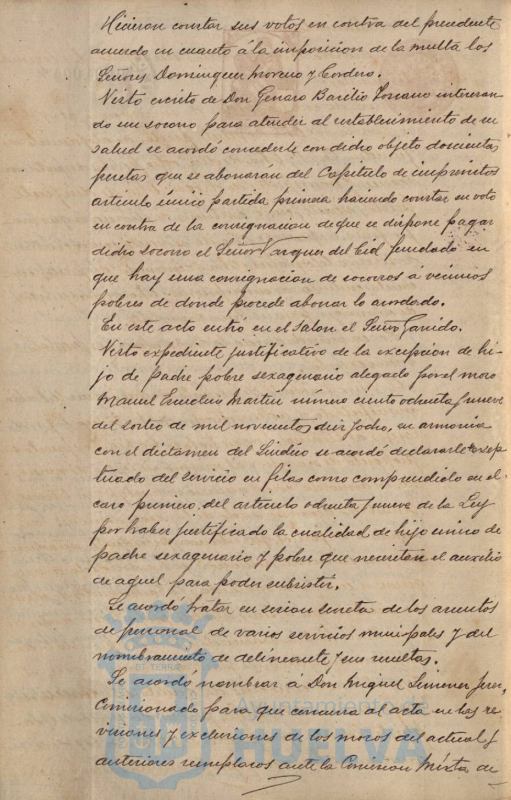 Hicieron constar sus votos en contra del precedente
acuerdo en cuanto á la imposicion de la multa los
Señores Dominguez Moreno y Cordero.
Visto escrito de Don Genaro Basilio Lorcano interesan
do un socorro para atender al restablecimiento de su
salud se acordó concederle con dicho objeto doscientas
pesetas que se abonarán del Capitulo de imprevistos
articulo único partida primera haciendo constar su voto
en contra de la consignacion de que se dispone pagar
dicho socorro el Señor Vazquez del Cid fundado en
que hay una consignacion de socorros á vecinos
pobres de donde procede abonar lo acordado.
En este acto entró en el salon el Señor Garrido.
Visto expediente justificativo de la excepcion de hi-
jo de Padre pobre sexagenario alegado por el mozo
Manuel Martin numero ciento ochenta y nueve
del sorteo de mil novecientos diez y ocho, en armonia
con el dictamen del Sindico se acordó declararle excep
tuado del servicio en filas como comprendido en el
caso primero del articulo ochenta y nueve de la Ley
por haber justificado la cualidad de hijo unico de
padre sexagenario y pobre que necesitan el auxilio
de aquel para poder subsistir.
Se acordó tratar en sesion secreta de los asuntos
de personal de varios servicios municipales y del
nombramiento de delineante y sus resultas.
Se acordó nombrar á Don Miguel Jimenez Jerez,
Comisionado para que concurra al acta en las re
visiones y exclusiones de los mozos del actual y
anteriores reemplazos ante la Comision Mixta de
Ayuntamiento de
HUELVA